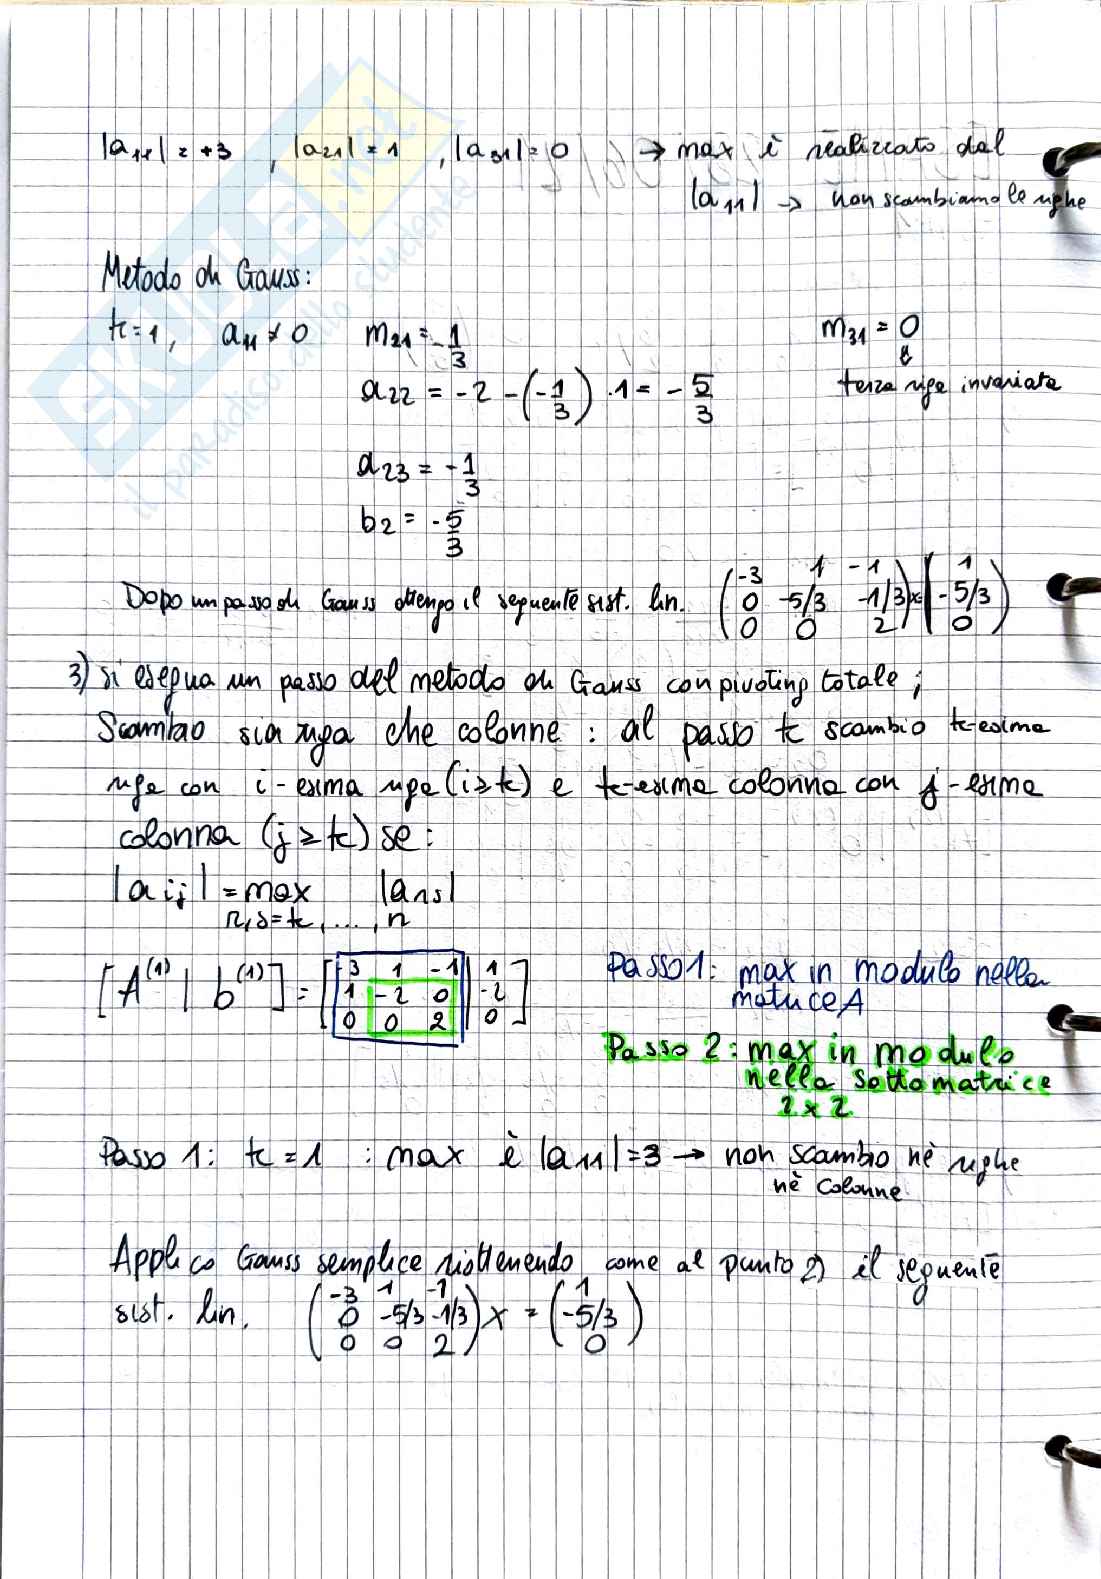 |a₁₁| = +3 , |a₂₁| = 1 , |a₃₁| = 0 → max è realizzato dal
|a₁₁| → non scambiamo le righe
Metodo di Gauss:
k=1, a₁₁ ≠ 0 m₂₁ = -1/3 m₃₁ = 0
a₂₂ = -2 - (-1/3) · 1 = -5/3 terza riga invariata
a₂₃ = -1/3
b₂ = -5/3
Dopo un passo di Gauss ottengo il seguente sist. lin.
-3 1 -1 | 1
0 -5/3 -1/3 x = -5/3
0 0 2 | 0
3) si esegua un passo del metodo di Gauss con pivoting totale;
Scambio sia riga che colonne : al passo k scambio k-esima
riga con i-esima riga (i≥k) e k-esima colonna con j-esima
colonna (j ≥ k) se:
|aᵢⱼ| = max |aᵣₛ|
r,s=k, ..., n
[A⁽¹⁾ | b⁽¹⁾] =
-3 1 -1 | 1
1 -2 0 | -2
0 0 2 | 0
Passo 1: max in modulo nella
matrice A
Passo 2: max in modulo
nella sottomatrice
2 x 2
Passo 1: k = 1 : max è |a₁₁| = 3 → non scambio nè righe
nè colonne.
Applico Gauss semplice riottenendo come al punto 2) il seguente
sist. lin.
-3 1 -1 | 1
0 -5/3 -1/3 x = -5/3
0 0 2 | 0
SKUOLA.net
il paradiso dello studente